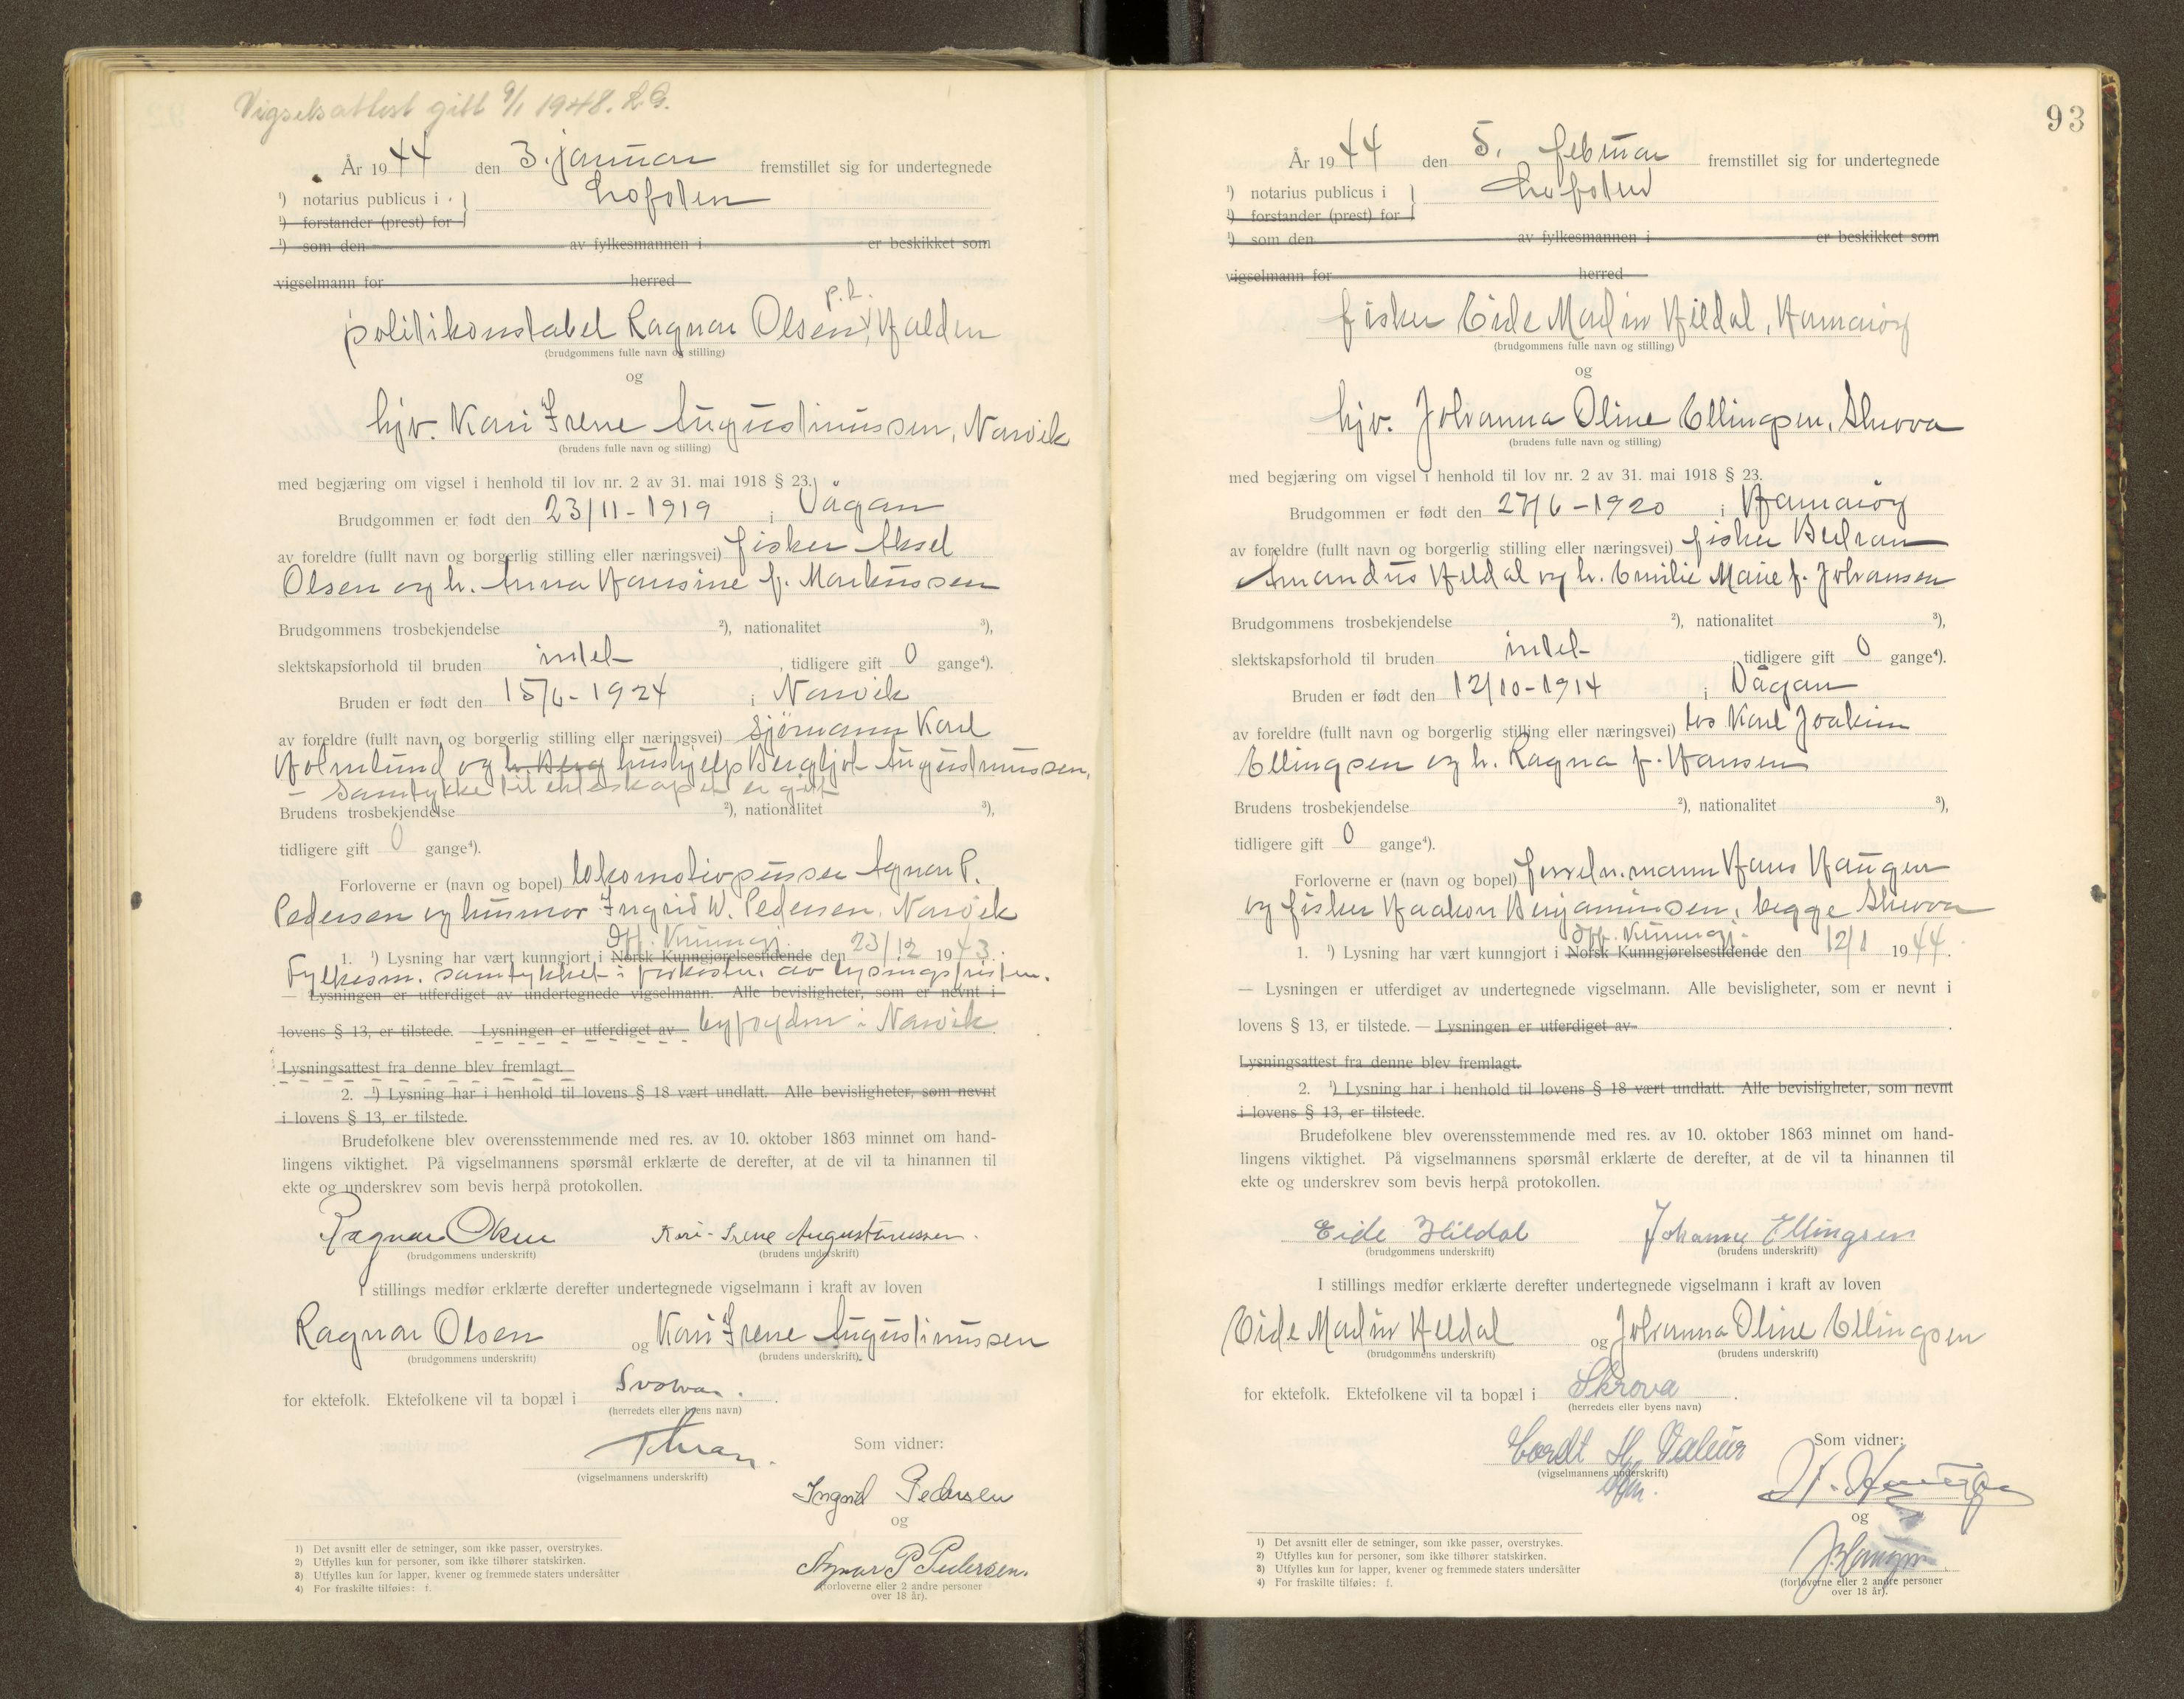 Vigselsattest gitt 9/1 1948. R.G.
År 1944 den 3. januar fremstillet sig for undertegnede
¹) notarius publicus i Lofoten
¹) forstander (prest) for
¹) som den av fylkesmannen i er beskikket som
vigselmann for herred
p.t.
politikonstabel Ragnar Olsen, Halden
(brudgommens fulle navn og stilling)
og
hjv. Kari Irene Augustinussen, Narvik
(brudens fulle navn og stilling)
med begjæring om vigsel i henhold til lov nr. 2 av 31. mai 1918 § 23.
Brudgommen er født den 23/11-1919 i Vågan
av foreldre (fullt navn og borgerlig stilling eller næringsvei) fisker Aksel
Olsen og h. Anna Hansine f. Markussen
Brudgommens trosbekjendelse ²), nationalitet ³),
slektskapsforhold til bruden intet, tidligere gift 0 gange⁴).
Bruden er født den 15/6-1924 i Narvik
av foreldre (fullt navn og borgerlig stilling eller næringsvei) sjømann Karl
Holmlund og h. Berg hushjelp Bergljot Augustinussen,
- Samtykke til ekteskapet er gitt
Brudens trosbekjendelse ²), nationalitet ³),
tidligere gift 0 gange⁴).
Forloverne er (navn og bopel) lokomotivpusser Agnar P.
Pedersen og husmor Ingrid W. Pedersen, Narvik
Off. Kunngj.
1. ¹) Lysning har vært kunngjort i Norsk Kunngjørelsestidende den 23/12 1943.
Fylkesm. samtykket i forkorteln. av lysningsfristen.
— Lysningen er utferdiget av undertegnede vigselmann. Alle bevisligheter, som er nevnt i
lovens § 13, er tilstede. — Lysningen er utferdiget av byfogden i Narvik.
Lysningsattest fra denne blev fremlagt.
2. ¹) Lysning har i henhold til lovens § 18 vært undlatt. Alle bevisligheter, som nevnt
i lovens § 13, er tilstede.
Brudefolkene blev overensstemmende med res. av 10. oktober 1863 minnet om hand-
lingens viktighet. På vigselmannens spørsmål erklærte de derefter, at de vil ta hinannen til
ekte og underskrev som bevis herpå protokollen.
Ragnar Olsen Kari-Irene Augustinussen.
(brudgommens underskrift) (brudens underskrift)
I stillings medfør erklærte derefter undertegnede vigselmann i kraft av loven
Ragnar Olsen og Kari Irene Augustinussen
(brudgommens underskrift) (brudens underskrift)
for ektefolk. Ektefolkene vil ta bopæl i Svolvær.
(herredets eller byens navn)
Som vidner:
(vigselmannens underskrift)
Ingrid Pedersen
og
Agnar P Pedersen.
(forloverne eller 2 andre personer
over 18 år).
1) Det avsnitt eller de setninger, som ikke passer, overstrykes.
2) Utfylles kun for personer, som ikke tilhører statskirken.
3) Utfylles kun for lapper, kvener og fremmede staters undersåtter
4) For fraskilte tilføies: f.
93
År 1944 den 5. februar fremstillet sig for undertegnede
¹) notarius publicus i Lofoten
¹) forstander (prest) for
¹) som den av fylkesmannen i er beskikket som
vigselmann for herred
fisker Eide Martin Hildal, Hamarøy
(brudgommens fulle navn og stilling)
og
hjv. Johanna Oline Ellingsen, Skrova
(brudens fulle navn og stilling)
med begjæring om vigsel i henhold til lov nr. 2 av 31. mai 1918 § 23.
Brudgommen er født den 27/6-1920 i Hamarøy
av foreldre (fullt navn og borgerlig stilling eller næringsvei) fisker Bertran
Amandus Hildal og h. Emilie Marie f. Johansen
Brudgommens trosbekjendelse ²), nationalitet ³),
slektskapsforhold til bruden intet, tidligere gift 0 gange⁴).
Bruden er født den 12/10-1914 i Vågan
av foreldre (fullt navn og borgerlig stilling eller næringsvei) los Karl Joakim
Ellingsen og h. Ragna f. Hansen
Brudens trosbekjendelse ²), nationalitet ³),
tidligere gift 0 gange⁴).
Forloverne er (navn og bopel) forretn.mann Hans Haugen
og fisker Haakon Benjaminsen, begge Skrova
Off. Kunngj.
1. ¹) Lysning har vært kunngjort i Norsk Kunngjørelsestidende den 12/1 1944.
— Lysningen er utferdiget av undertegnede vigselmann. Alle bevisligheter, som er nevnt i
lovens § 13, er tilstede. — Lysningen er utferdiget av .
Lysningsattest fra denne blev fremlagt.
2. ¹) Lysning har i henhold til lovens § 18 vært undlatt. Alle bevisligheter, som nevnt
i lovens § 13, er tilstede.
Brudefolkene blev overensstemmende med res. av 10. oktober 1863 minnet om hand-
lingens viktighet. På vigselmannens spørsmål erklærte de derefter, at de vil ta hinannen til
ekte og underskrev som bevis herpå protokollen.
Eide Hildal Johanna Ellingsen
(brudgommens underskrift) (brudens underskrift)
I stillings medfør erklærte derefter undertegnede vigselmann i kraft av loven
Eide Martin Hildal og Johanna Oline Ellingsen
(brudgommens underskrift) (brudens underskrift)
for ektefolk. Ektefolkene vil ta bopæl i Skrova.
(herredets eller byens navn)
Cordt H. Valeur Som vidner:
(vigselmannens underskrift)
og
(forloverne eller 2 andre personer
over 18 år).
1) Det avsnitt eller de setninger, som ikke passer, overstrykes.
2) Utfylles kun for personer, som ikke tilhører statskirken.
3) Utfylles kun for lapper, kvener og fremmede staters undersåtter
4) For fraskilte tilføies: f.